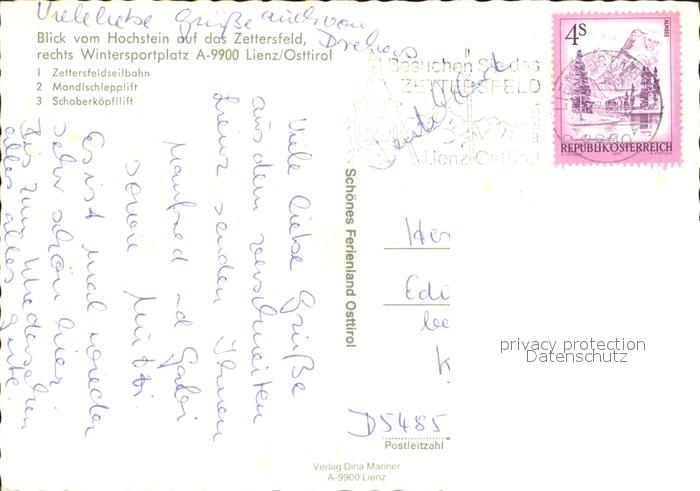 Viele liebe Grüße auch von
Drehers
Blick vom Hochstein auf das Zettersfeld,
rechts Wintersportplatz A-9900 Lienz/Osttirol
1 Zettersfeldseilbahn
2 Mandlschlepplift
3 Schoberköpflift
Besuchen Sie das
ZETTERSFELD
Lienz Osttirol
4S
ALMSEE
REPUBLIK ÖSTERREICH
Viele liebe Grüße
aus dem verschneiten
Lienz senden Ihnen
Manfred und Gabi
sowie Mutti.
Es ist mal wieder
sehr schön hier.
Bis zum Wiedersehn
alles alles Gute.
Schönes Ferienland Osttirol
Her
Edi
be
K
D5485
Postleitzahl
Verlag Dina Mariner
A-9900 Lienz
privacy protection
Datenschutz